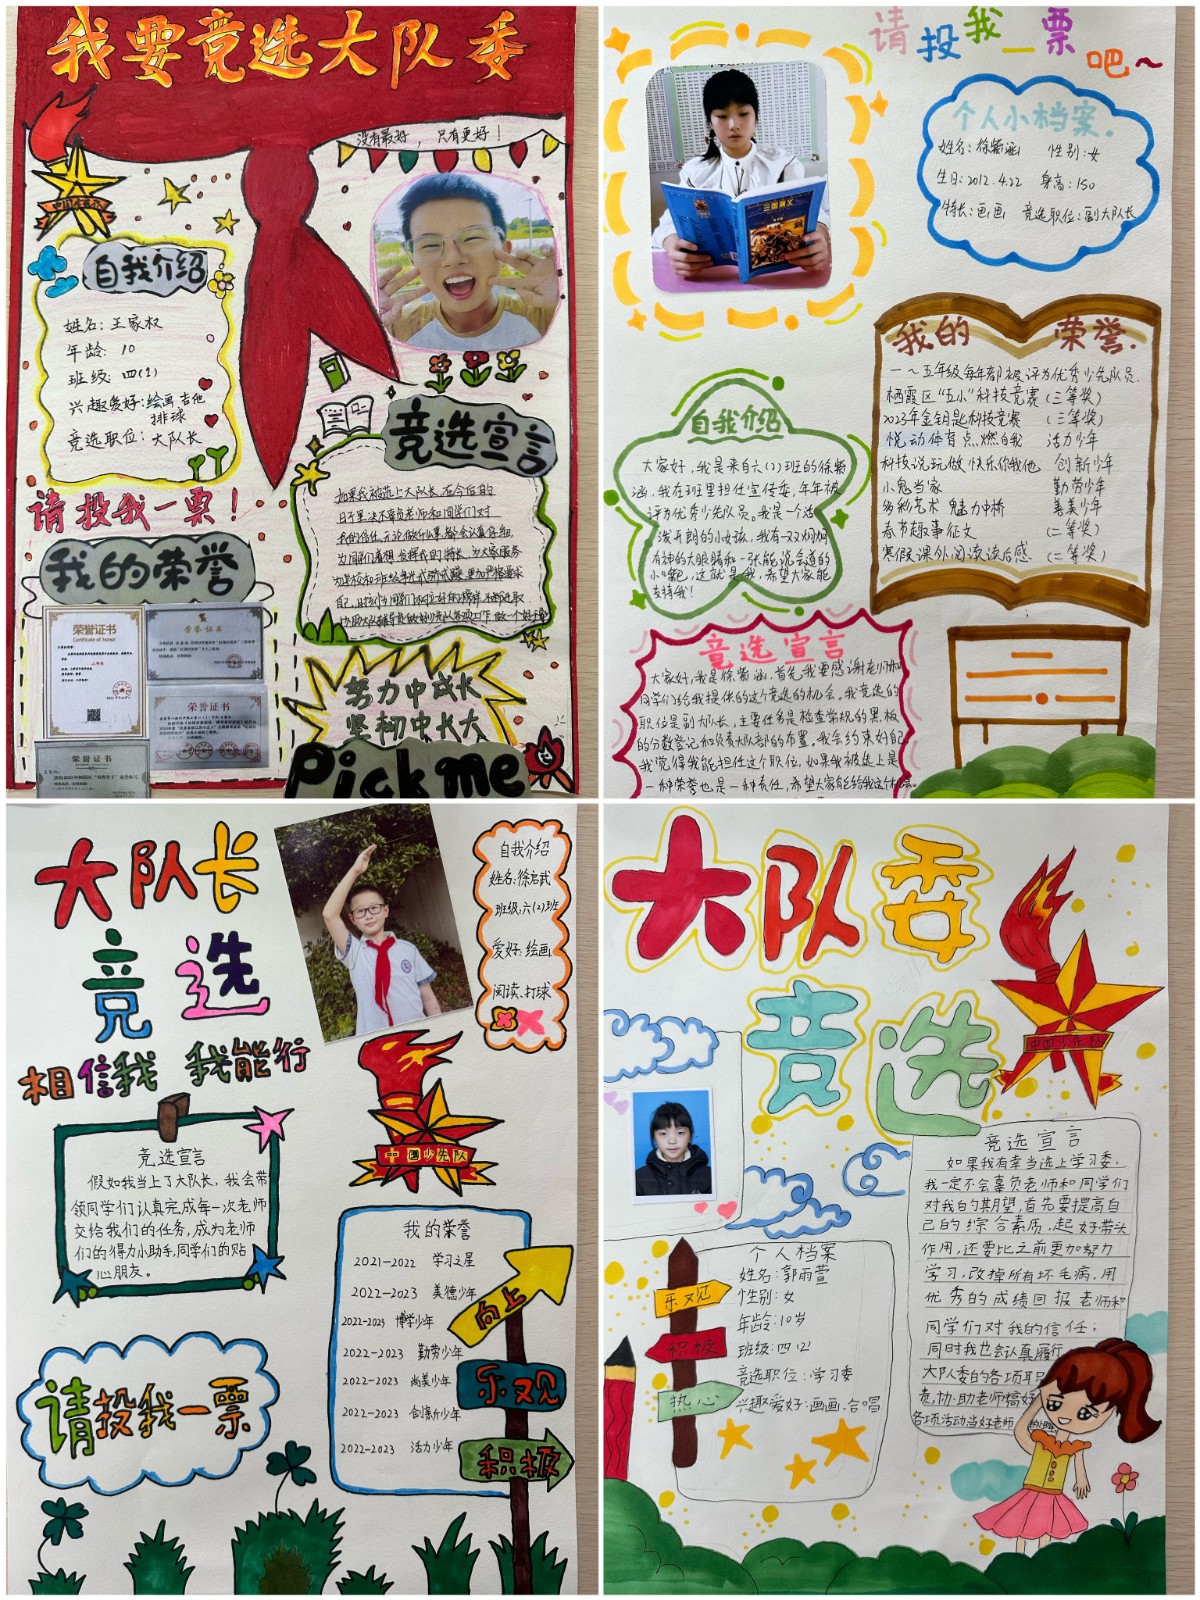 我要竞选大队委
没有最好，只有更好！
中国少先队
自我介绍
姓名：王家权
年龄：10
班级：四(1)
兴趣爱好：绘画 吉他
排球
竞选职位：大队长
请投我一票！
我的荣誉
荣誉证书
Certificate of honor
荣誉证书
荣誉证书
荣誉证书
竞选宣言
如果我被选上大队长，在今后的
日子里决不辜负老师和同学们对
我的信任，无论做什么事，都会认真仔细
努力中成长
坚韧中长大
Pick me
请投我一票吧~
个人小档案.
姓名：徐紫涵 性别：女
生日：2012.4.22 身高：150
特长：画画 竞选职位：副大队长
我的荣誉.
一～五年级每年都被评为优秀少先队员.
栖霞区“五小”科技竞赛（三等奖）
2023年金钥匙科技竞赛（三等奖）
悦动体育 点燃自我 活力少年
科技说玩做 快乐你我他 创新少年
小鬼当家 勤劳少年
多彩艺术 魅力中桥 善美少年
春节趣事征文（二等奖）
寒假课外阅读读后感（二等奖）
自我介绍
大家好，我是来自六(2)班的徐紫
涵，我在班里担任宣传委，年年被
评为优秀少先队员。我是一个活
泼开朗的小女孩，我有一双炯炯
有神的大眼睛和一张能说会道的
小嘴巴，这就是我，希望大家能
支持我！
竞选宣言
大家好，我是徐紫涵，首先我要感谢老师和
同学们给我提供的这个竞选的机会。我竞选的
职位是副大队长，主要任务是检查常规的黑板
的分数登记和负责大队部的布置。我会约束好自己
我觉得我能担任这个职位，如果我被选上是
一种荣誉也是一种责任，希望大家能给我这个机会。
大队长
竞选
相信我 我能行
自我介绍
姓名：徐启武
班级：六(2)班
爱好：绘画
阅读、打球
竞选宣言
假如我当上了大队长，我会带
领同学们认真完成每一次老师
交给我们的任务，成为老师
们的得力小助手，同学们的贴
心朋友。
中国少先队
我的荣誉
2021-2022 学习之星
2022-2023 美德少年
2022-2023 博学少年
2022-2023 勤劳少年
2022-2023 尚美少年
2022-2023 创新少年
2022-2023 活力少年
向上
乐观
积极
请投我一票
大队委
竞选
中国少先队
竞选宣言
如果我有幸当选上学习委，
我一定不会辜负老师和同学们
对我的期望，首先要提高自
己的综合素质，起好带头
作用，还要比之前更加努力
学习，改掉所有坏毛病，用
优秀的成绩回报老师和
同学们对我的信任；
同时我也会认真履行
大队委的各项职
责，协助老师搞好
各项活动当好老师
个人档案
姓名：郭雨萱
性别：女
年龄：10岁
班级：四(2)
竞选职位：学习委
兴趣爱好：画画，合唱
乐观
积极
热心